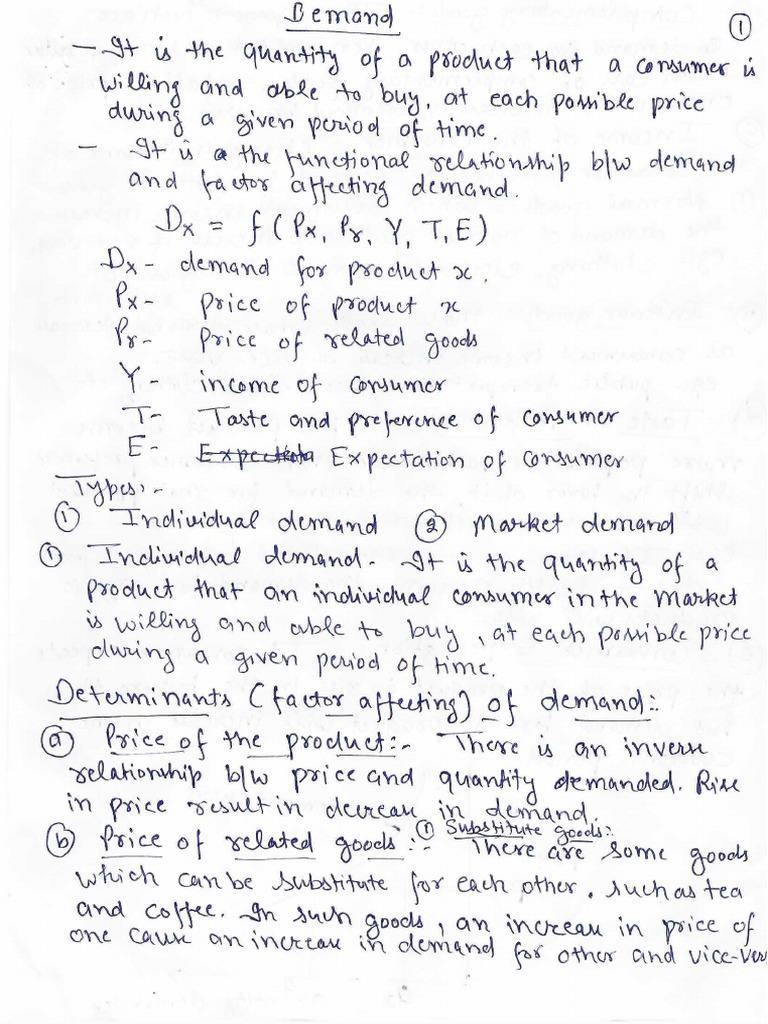 Demand
①
It is the quantity of a product that a consumer is
willing and able to buy, at each possible price
during a given period of time.
- It is a the functional relationship b/w demand
and factor affecting demand.
Dx = f ( Px Pr, Y, T, E )
Dx - demand for product x.
Px - price of product x
Pr - price of related goods
Y income of consumer
T - Taste and preference of consumer
E - Expectata Expectation of consumer
Types -
① Individual demand ② Market demand
① Individual demand - It is the quantity of a
product that an individual consumer in the market
is willing and able to buy, at each possible price
during a given period of time.
Determinants (factor affecting) of demand:-
ⓐ Price of the product:- There is an inverse
relationship b/w price and quantity demanded. Rise
in price result in decrease in demand.
ⓑ Price of related goods:- ① Substitute goods:- There are some goods
which can be substitute for each other. such as tea
and coffee. In such goods, an increase in price of
one cause an increase in demand for other and vice-vers